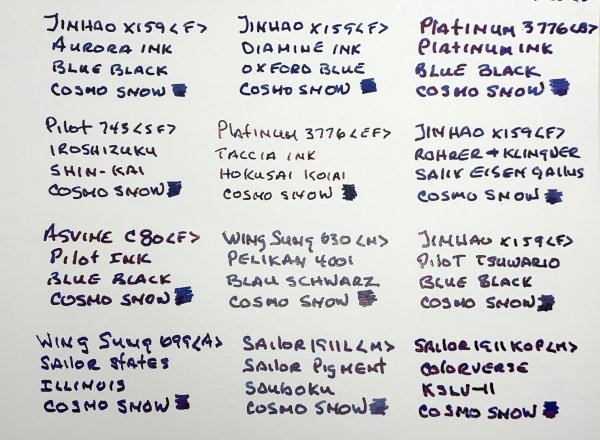 JINHAO X159<F>
AURORA INK
BLUE BLACK
COSMO SNOW
JINHAO X159<F>
DIAMINE INK
OXFORD BLUE
COSMO SNOW
PLATINUM 3776<B>
PLATINUM INK
BLUE BLACK
COSMO SNOW
PILOT 743<SF>
IROSHIZUKU
SHIN-KAI
COSMO SNOW
PLATINUM 3776<EF>
TACCIA INK
HOKUSAI KOIAI
COSMO SNOW
JINHAO X159<F>
ROHRER + KLINGNER
SALIX EISEN GALLUS
COSMO SNOW
ASVINE C80<F>
PILOT INK
BLUE BLACK
COSMO SNOW
WING SUNG 630<M>
PELIKAN 4001
BLAU SCHWARZ
COSMO SNOW
JINHAO X159<F>
PILOT TSUWARIO
BLUE BLACK
COSMO SNOW
WING SUNG 699<A>
SAILOR STATES
ILLINOIS
COSMO SNOW
SAILOR 1911L<M>
SAILOR PIGMENT
SOUBOKU
COSMO SNOW
SAILOR 1911 KOP<M>
COLORVERSE
KSLV-II
COSMO SNOW